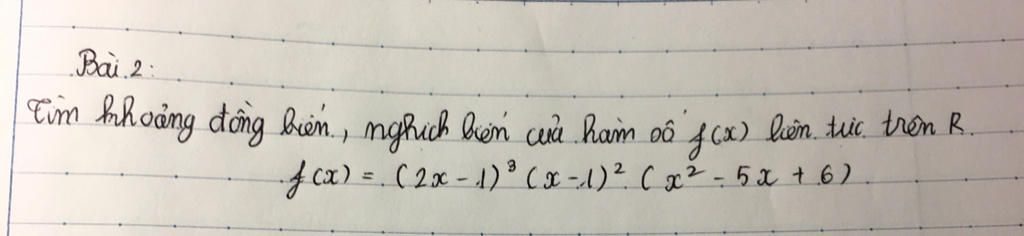 Bài 2:
Tìm khoảng đồng biến, nghịch biến của hàm số f(x) liên tục trên R.
f(x) = (2x - 1)³ (x - 1)² (x² - 5x + 6)